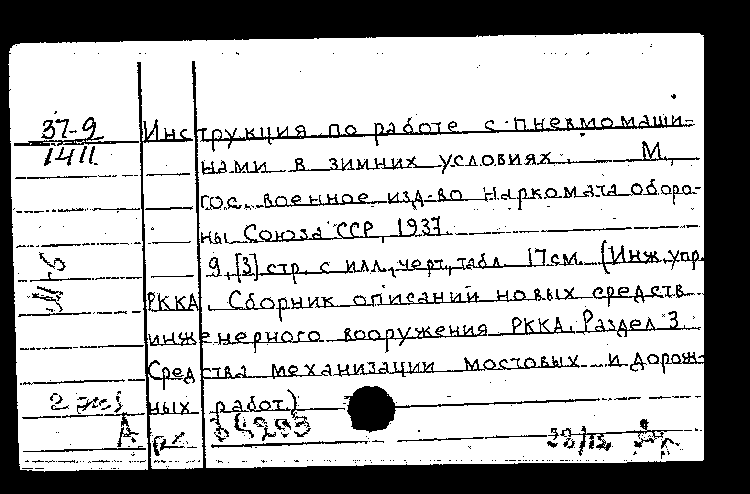 37-9
1411
Инструкция по работе с пневмомаши-
нами в зимних условиях. М.,
Гос. военное изд-во Наркомата оборо-
ны Союза ССР, 1937.
9, [3] стр. с илл., черт., табл. 17см. (Инж. упр.
РККА. Сборник описаний новых средств
инженерного вооружения РККА. Раздел 3
Средства механизации мостовых и дорож-
ных работ.)
2 экз
А